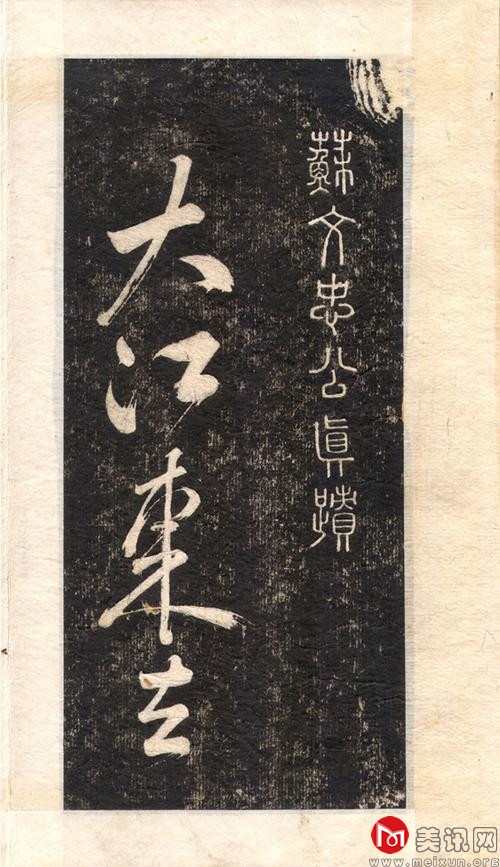 蘇文忠公真蹟
大江東去
美讯网
www.meixun.org